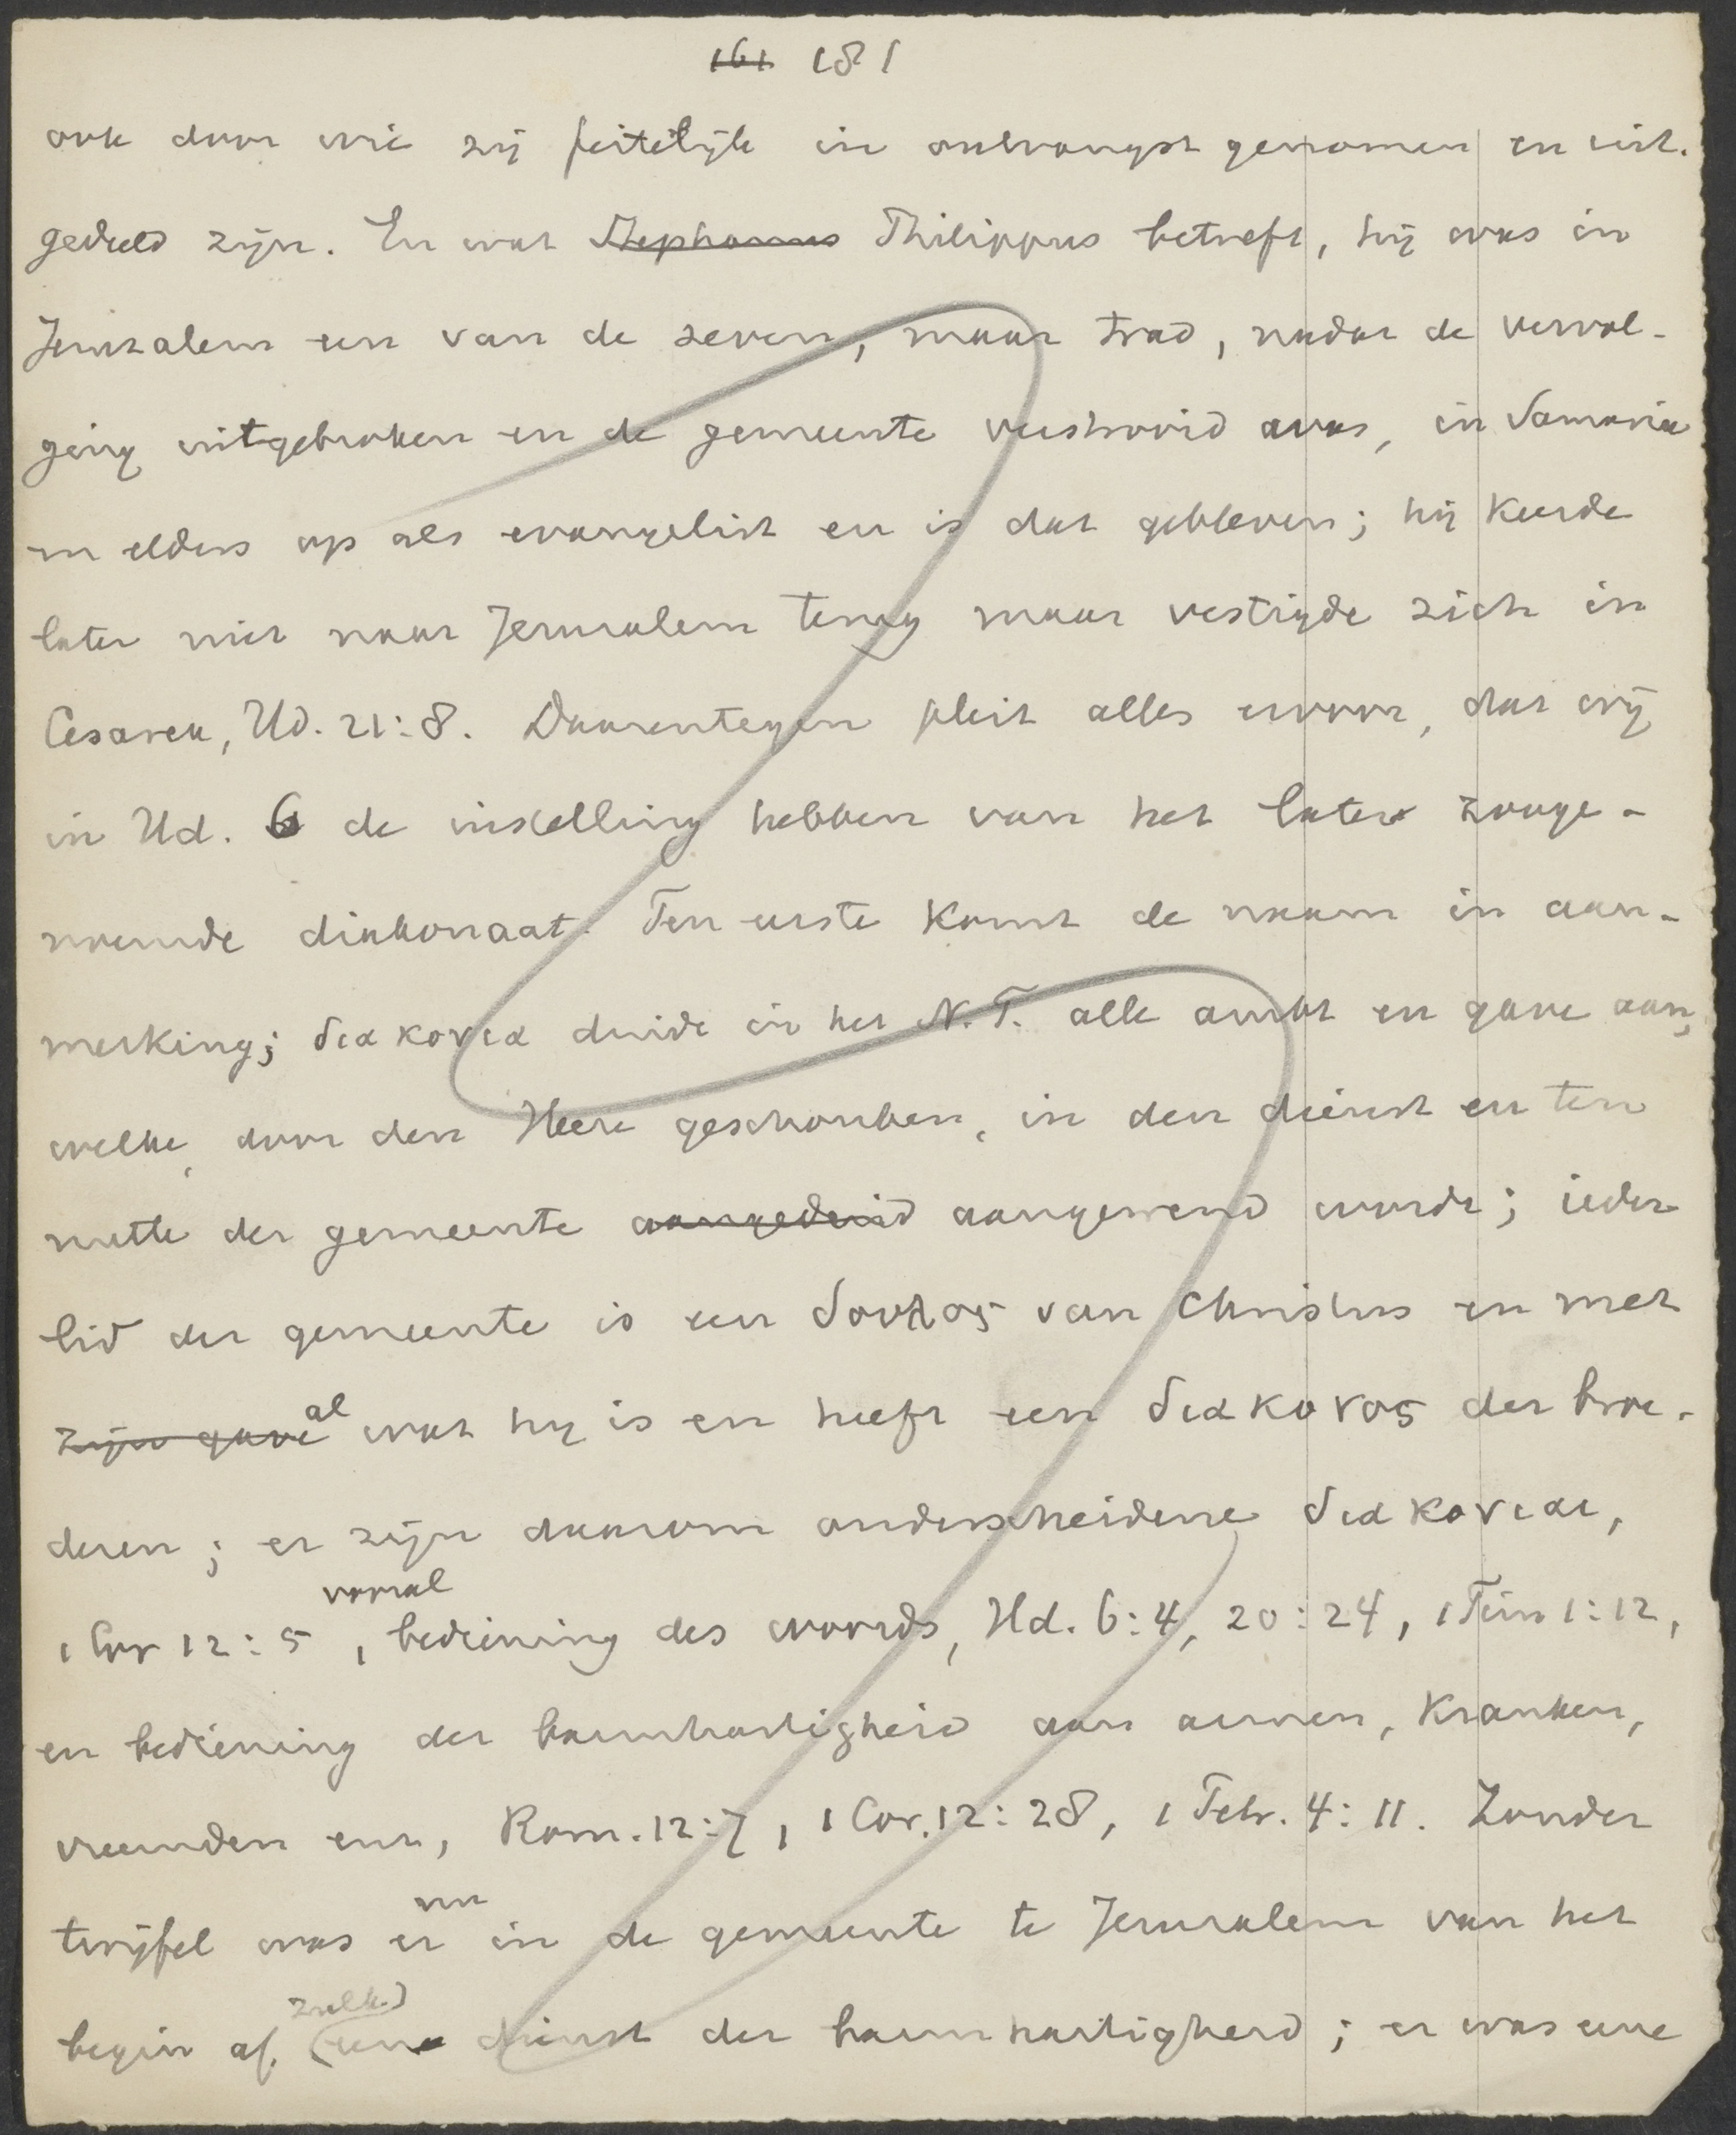 161 181
ook door wie zij feitelijk in ontvangst genomen en uit-
gedeeld zijn. En wat Stephanus Philippus betreft, hij was in
Jeruzalem een van de zeven, maar trad, nadat de vervol-
ging uitgebroken en de gemeente verstrooid was, in Samaria
en elders op als evangelist en is dat gebleven; hij keerde
later niet naar Jerusalem terug maar vestigde zich in
Cesarea, Hd. 21:8. Daarentegen pleit alles ervoor, dat wij
in Hd. 6 de instelling hebben van het later zooge-
noemde diakonaat. Ten eerste komt de naam in aan-
merking; διακονια duidt in het N.T. alle ambt en gave aan,
welke, door den Heere geschonken, in den dienst en ten
nutte der gemeente aangeduid aangewend wordt; ieder
lid der gemeente is een δουλος van Christus en met
zijn gave al wat hij is en heeft een διακονος der broe-
deren; er zijn daarom onderscheidene διακονιαι,
1 Cor 12:5, vooral bediening des woords, Hd. 6:4, 20:24, 1 Tim 1:12,
en bediening der barmhartigheid aan armen, kranken,
vreemden enz, Rom. 12:7, 1 Cor. 12:28, 1 Petr. 4:11. Zonder
twijfel was er nu in de gemeente te Jerusalem van het
begin af (zulk) een dienst der barmhartigheid; er was eene